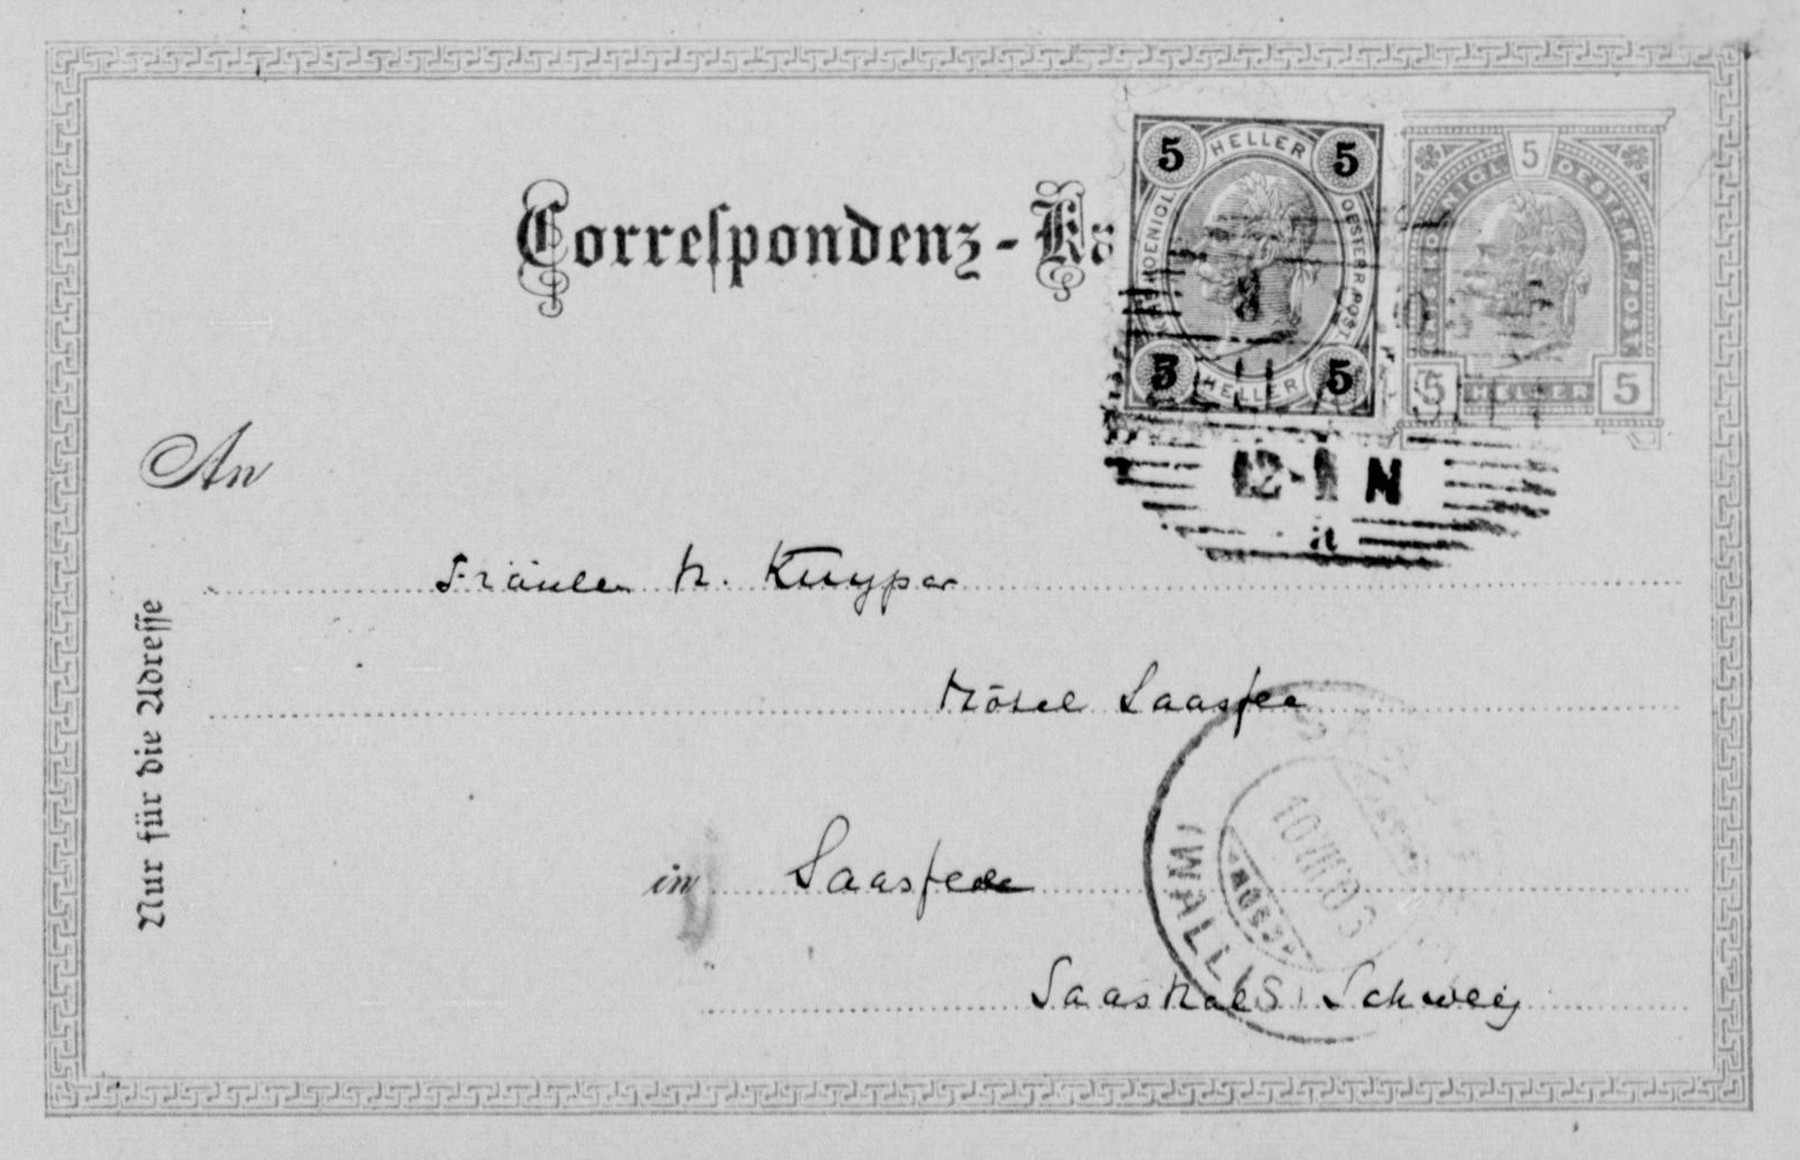 Correspondenz-Ka
5 HELLER 5
5 HELLER 5
KOENIGL. OESTERR. POST
5
KOENIGL. OESTERR. POST
5 HELLER 5
12-1 N
An
Fräulein H. Kuyper
Hôtel Saasfee
in Saasfee
Saasthal Schweiz
Nur für die Adresse
10 VIII 03
(WALLIS)